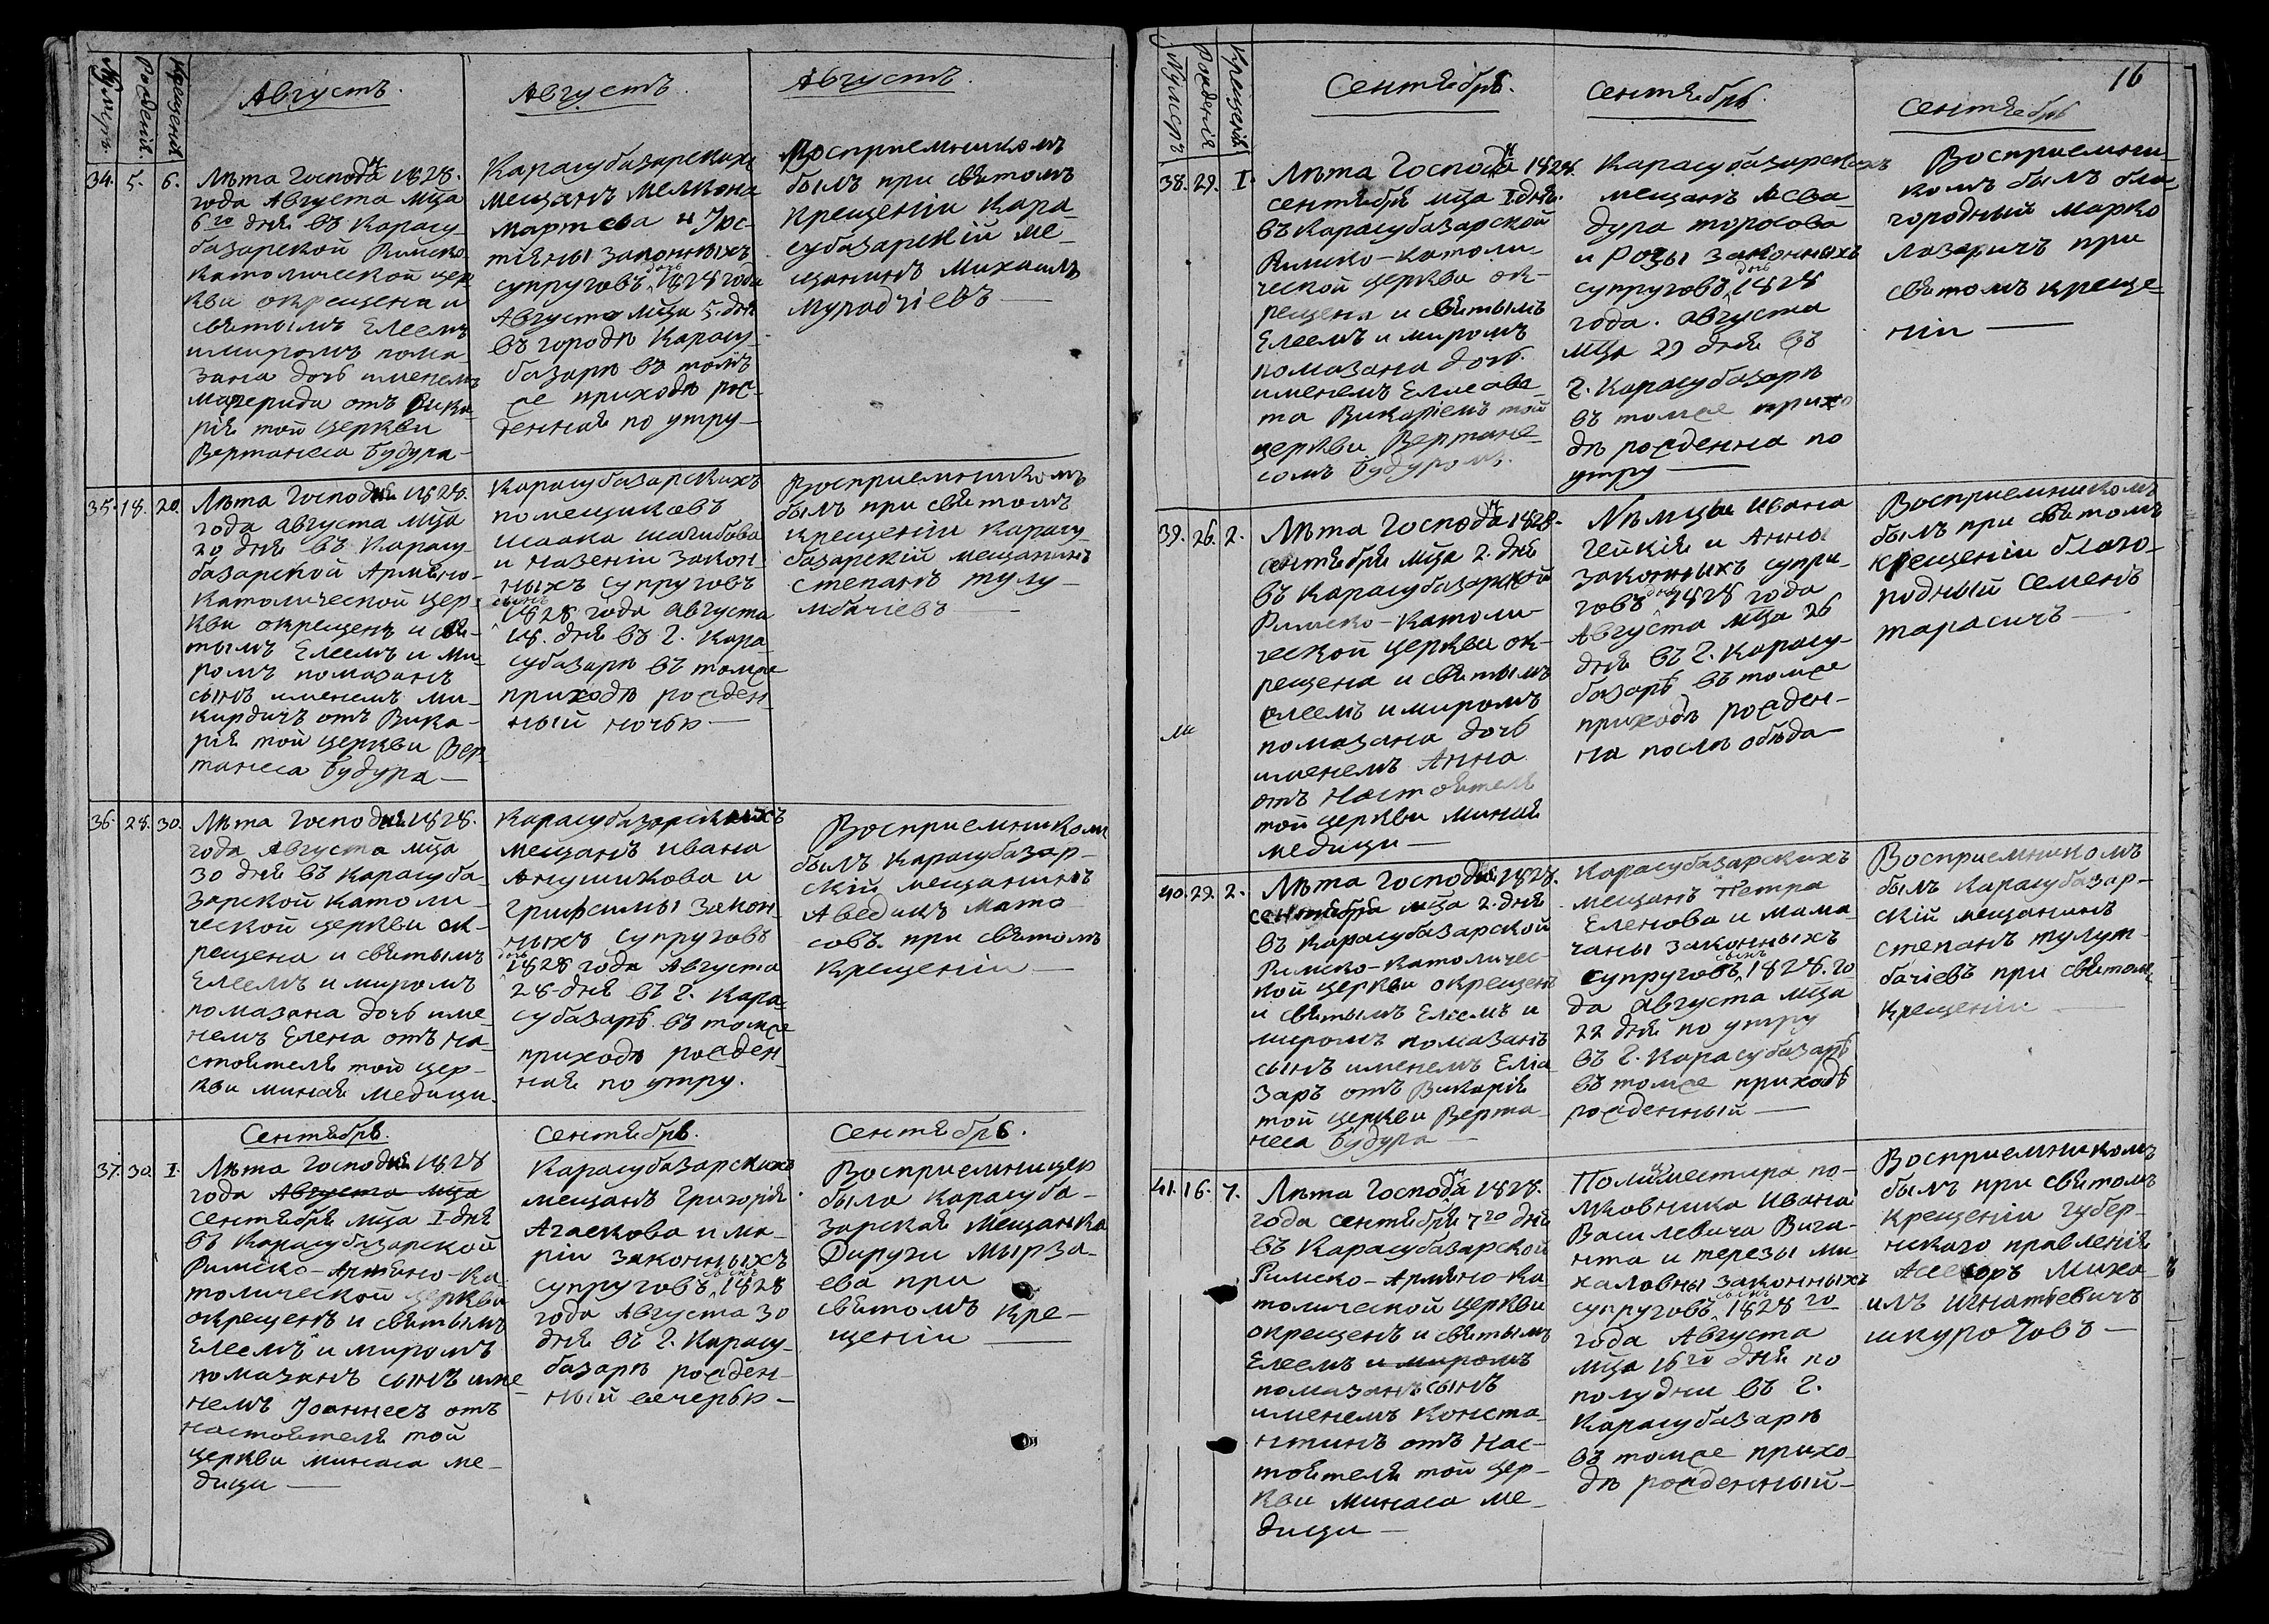 Нумеръ.
Рожденія.
Крещенія
Августъ.
34. 5. 6.
Лѣта Господня 1828.
года Августа мца
6го дня въ Карасу-
базарской Римско
католической цер
кви окрещена и
святымъ Елеемъ
и миромъ пома-
зана дочь именемъ
Маргерида отъ Вика-
рія той церкви
Вертанеса Будура
Августъ.
Карасубазарскихъ
мещанъ Мелкона
Мартева и Ус-
тіяны законныхъ
супруговъ дочь 1828 года
Августа мца 5. дня
въ городѣ Карасу-
базарѣ въ томъ
же приходѣ рож-
денная по утру
Августъ.
Восприемникомъ
былъ при святомъ
крещеніи Кара-
субазарскій ме-
щанинъ Михаилъ
Мурадчіевъ
35. 18. 20.
Лѣта Господня 1828.
года августа мца
20 дня въ Карасу-
базарской Армено-
Католической цер-
кви окрещенъ и свя-
тымъ Елеемъ и ми-
ромъ помазанъ
сынъ именемъ Ми-
кирдичъ отъ Вика-
рія той церкви Вер
танеса Будура
Карасубазарскихъ
помещиковъ
Исаака Шагибова
и Назеніи закон-
ныхъ супруговъ
сынъ 1828 года августа
18. дня въ г. Кара
субазарѣ въ томже
приходѣ рожден
ный ночью
Восприемникомъ
былъ при святомъ
крещеніи Карасу-
базарскій мещанинъ
Степанъ Тулу-
мбачіевъ
36. 28. 30.
Лѣта Господня 1828.
года Августа мца
30 дня въ Карасуба-
зарской католи-
ческой церкви ок-
рещена и святымъ
Елеемъ и миромъ
помазана дочь име-
немъ Елена отъ на-
стоятеля той цер-
кви Миная Медици.
Карасубазарскихъ
мещанъ Ивана
Анушикова и
Грипсимы закон-
ныхъ супруговъ
дочь 1828 года Августа
28 дня въ г. Кара
субазарѣ въ томже
приходѣ рожден
ная по утру.
Восприемникомъ
былъ Карасубазар-
скій мещанинъ
Аведикъ Мато
совъ при святомъ
крещеніи
Сентябрь.
37. 30. I.
Лѣта Господня 1828
года Августа мца
Сентября мца I дня
въ Карасубазарской
Римско-Армено-Ка-
толической церкви
окрещенъ и святымъ
Елеемъ и миромъ
помазанъ сынъ име-
немъ Іоаннесъ отъ
настоятеля той
церкви Минаса Ме-
дици
Сентябрь.
Карасубазарскихъ
мещанъ Григорія
Агжекова и Ма-
ріи законныхъ
супруговъ сынъ 1828
года Августа 30
дня въ г. Карасу-
базарѣ рожден-
ный вечерью
Сентябрь.
Восприемницею
была Карасуба-
зарская мещанка
Диругн Мырза-
ева при
святомъ кре-
щеніи
16
Нумеръ
Рожденія
Крещенія
Сентябрь.
38. 29. I.
Лѣта Господня 1828.
сентября мца I дня.
въ Карасубазарской
Римско-Католи-
ческой церкви ок-
рещена и святымъ
Елеемъ и миромъ
помазана дочь
именемъ Елисаве-
та Викаріемъ той
церкви Вертане-
сомъ Будуромъ.
Сентябрь.
Карасубазарскихъ
мещанъ Асва-
дура Торосова
и Розы законныхъ
супруговъ дочь 1828
года. августа
мца 29 дня въ
г. Карасубазарѣ
въ томже прихо
дѣ рожденна по
утру
Сентябрь
Восприемни-
комъ былъ бла-
городный Марко
Лазаричъ при
святомъ креще-
ніи
39. 26. 2.
Лѣта Господня 1828.
сентября мца 2. дня
въ Карасубазарской
Римско-Католи-
ческой церкви ок-
рещена и святымъ
елеемъ и миромъ
помазана дочь
именемъ Анна
отъ Настоятеля
той церкви Миная
Медици
Нѣмцы Ивана
Гейкія и Анны
законныхъ супру-
говъ дочь 1828 года
Августа мца 26
дня въ г. Карасу-
базарѣ въ томже
приходѣ рожден-
на послѣ обѣда
Восприемникомъ
былъ при святомъ
крещеніи благо-
родный Семенъ
Тарасичъ
40. 29. 2.
Лѣта Господня 1828.
сентября мца 2. дня
въ Карасубазарской
Римско-Католичес-
кой церкви окрещенъ
и святымъ Елеемъ и
миромъ помазанъ
сынъ именемъ Еліа
заръ отъ Викарія
той церкви Верта-
неса Будура
Карасубазарскихъ
мещанъ Петра
Еленова и Мама-
чаны законныхъ
супруговъ сынъ 1828. го
да Августа мца
22 дня по утру
въ г. Карасубазарѣ
въ томже приходѣ
рожденный
Восприемникомъ
былъ Карасубазар-
скій мещанинъ
Степанъ Тулум-
бачіевъ при святомъ
крещеніи
41. 16. 7.
Лѣта Господня 1828.
года сентября 7го дня
въ Карасубазарской
Римско-Армяно-Ка
толической церкви
окрещенъ и святымъ
Елеемъ и миромъ
помазанъ сынъ
именемъ Конста-
нтинъ отъ Нас-
тоятеля той цер-
кви Минаса Ме-
дици
Полицмейстера по-
лковника Ивана
Василевича Вига-
нта и Терезы Ми-
халовны законныхъ
супруговъ сынъ 1828 го
года Августа
мца 16го дня по
полудни въ г.
Карасубазарѣ
въ томже прихо-
дѣ рожденный
Восприемникомъ
былъ при святомъ
крещеніи губер-
нскаго правленія
Асесоръ Миха-
илъ Игнатьевичъ
Шкурочовъ